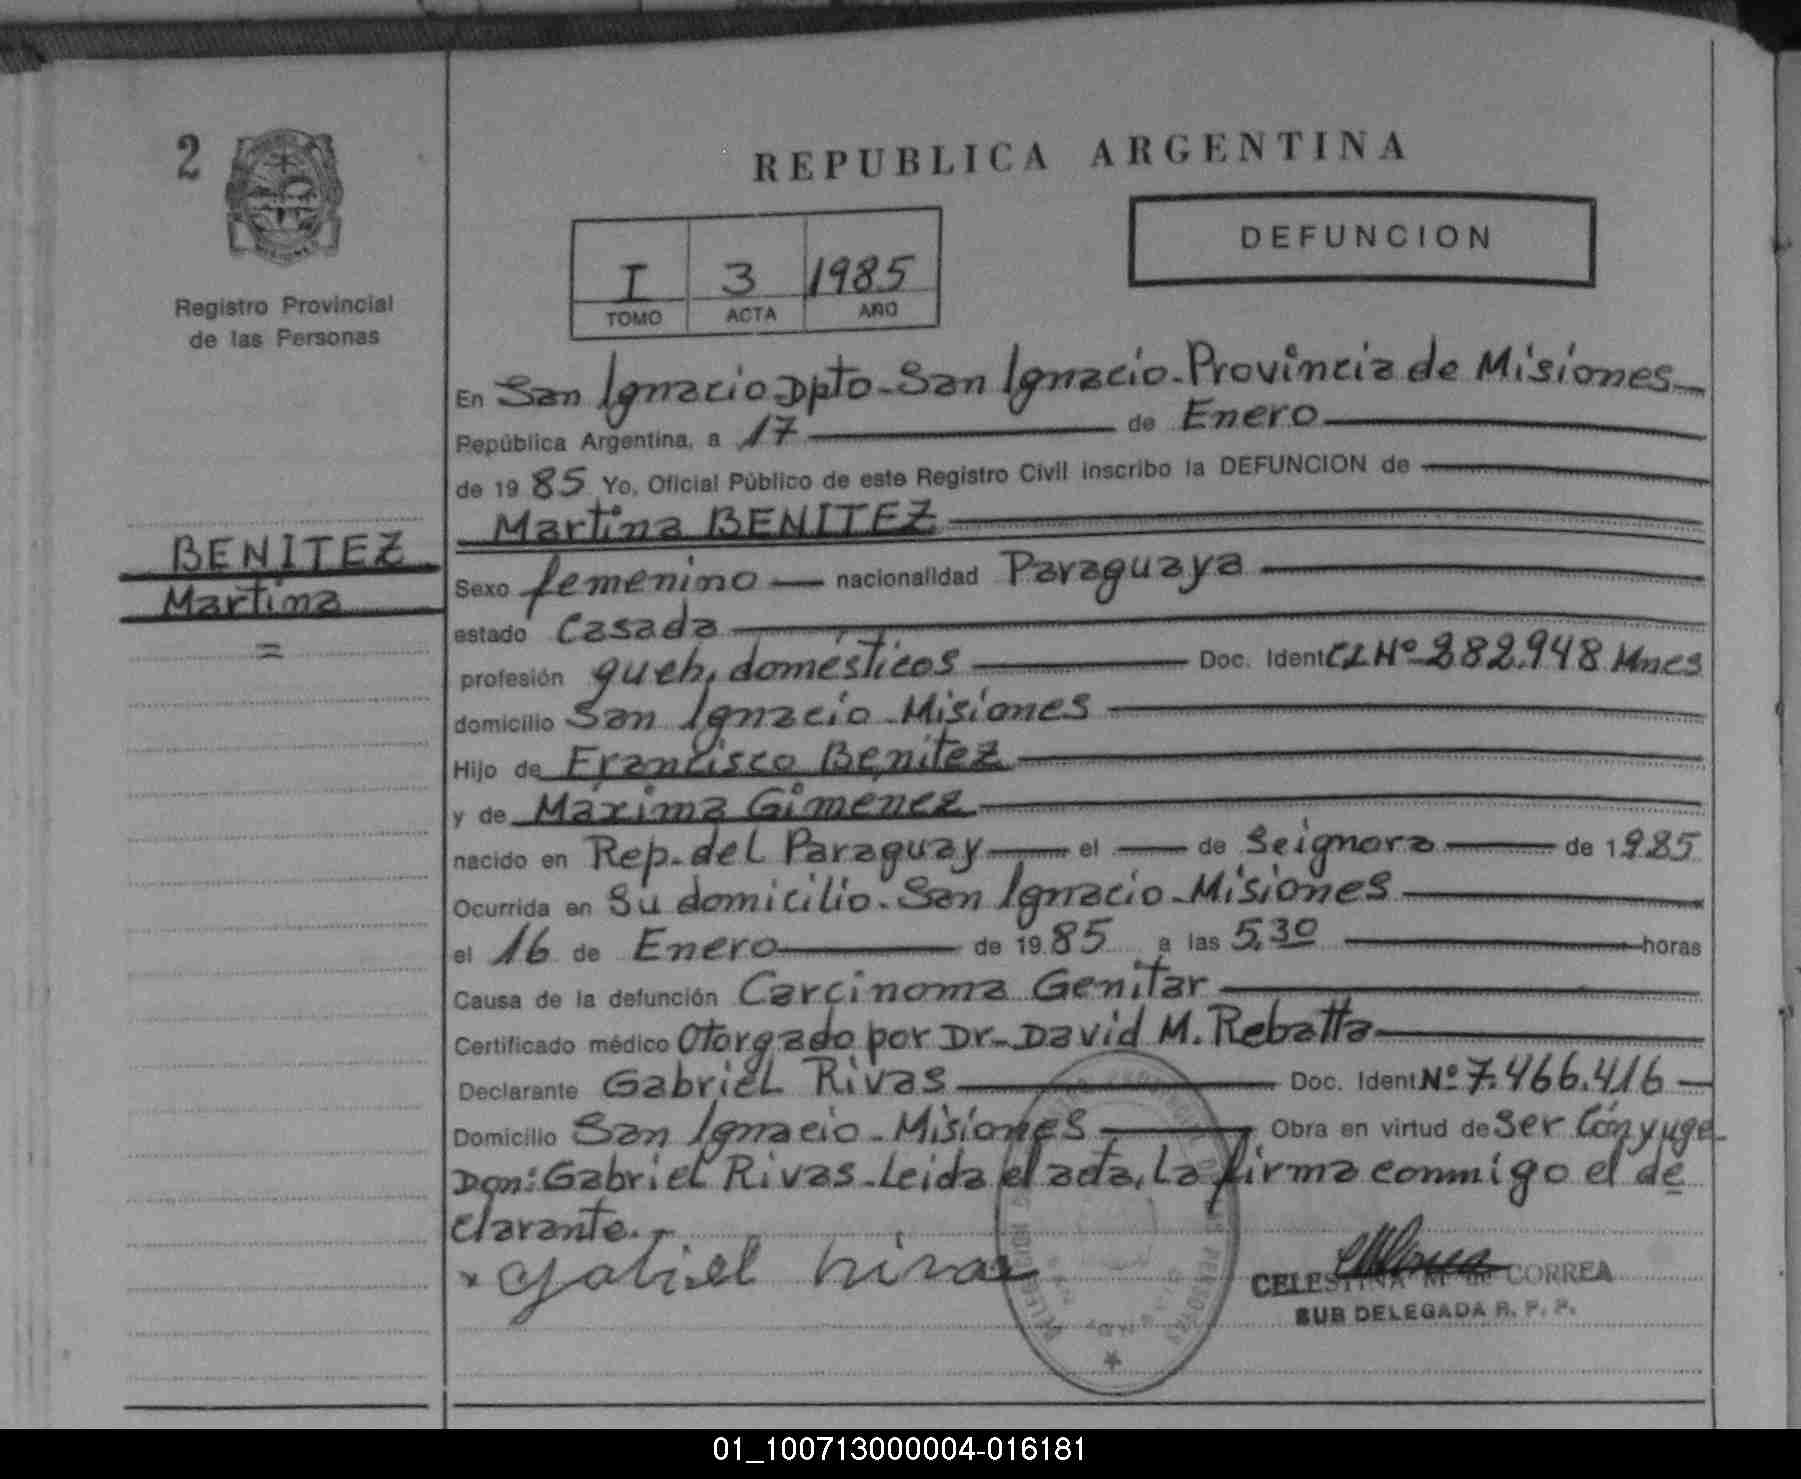 2
REPUBLICA ARGENTINA
DEFUNCION
I 3 1985
TOMO ACTA AÑO
Registro Provincial
de las Personas
En San Ignacio Dpto-San Ignacio-Provincia de Misiones
República Argentina, a 17 de Enero
de 1985 Yo, Oficial Público de este Registro Civil inscribo la DEFUNCION de
Martina BENITEZ
BENITEZ
Martina
=
Sexo femenino nacionalidad Paraguaya
estado Casada
profesión queh, domésticos Doc. Ident C.I. Nº 282.948 Mnes
domicilio San Ignacio-Misiones
Hijo de Francisco Benitez
y de Máxima Gimenez
nacido en Rep. del Paraguay el de Seignora de 1985
Ocurrida en Su domicilio-San Ignacio-Misiones
el 16 de Enero de 1985 a las 5,30 horas
Causa de la defunción Carcinoma Genitar
Certificado médico Otorgado por Dr-David M. Rebatta
Declarante Gabriel Rivas Doc. Ident Nº 7.466.416
Domicilio San Ignacio-Misiones Obra en virtud de Ser Cónyuge-
Don: Gabriel Rivas-Leida el acta, La firma conmigo el de
clarante.-
Gabriel rivas
CELESTINA M. de CORREA
SUB DELEGADA R. P. P.
01_100713000004-016181